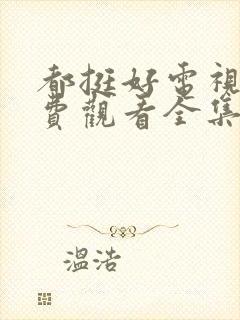 都挺好電視
費觀看全集
溫浩